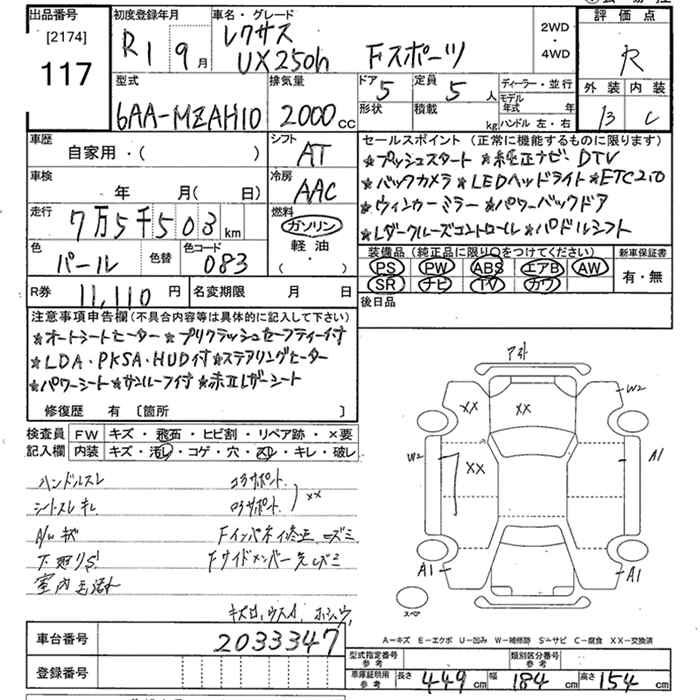 出品番号
[2174]
117
初度登録年月
R1 9月
車名・グレード
レクサス
UX250h Fスポーツ
2WD
・
4WD
評価点
R
外装 内装
B C
型式
6AA-MZAH10
排気量
2000cc
ドア
5
定員
5人
形状
積載
kg
ディーラー・並行
モデル年式 年
ハンドル 左・右
車歴
自家用・( )
シフト
AT
車検
年 月( 日)
冷房
AAC
走行
7万5千503km
燃料
ガソリン
軽油
( ・ )
色
パール
色替
色コード
083
R券 11,110円
名変期限 月 日
セールスポイント(正常に機能するものに限ります)
★プッシュスタート ★純正ナビ DTV
★バックカメラ ★LEDヘッドライト ★ETC2.0
★ウィンカーミラー ★パワーバックドア
★レーダークルーズコントロール ★パドルシフト
装備品(純正品に限り○をつけてください)
PS PW ABS エアB AW
SR ナビ TV カワ
新車保証書
有・無
後日品
注意事項申告欄(不具合内容等は具体的に記入して下さい)
★オートシートヒーター ★プリクラッシュセーフティー付
★LDA・PKSA・HUD付 ★ステアリングヒーター
★パワーシート ★サンルーフ付 ★赤レザーシート
修復歴 有〔箇所 〕
検査員記入欄
FW キズ・飛石・ヒビ割・リペア跡・×要
内装 キズ・汚れ・コゲ・穴・スレ・キレ・破レ
ハンドルスレ
シートスレキレ
A/Wキズ
下廻りS
コアサポート
ロアサポート
××
Fインパネ修正
Fサイドメンバー先
XX
XX
XX
W2
W2
A1
A1
A1
スペア
A−キズ E−エクボ U−凹み W−補修跡 S−サビ C−腐食 XX−交換済
車台番号
2033347
登録番号
型式指定番号
参考
類別区分番号
参考
車庫証明用
参考
長さ 449cm
幅 184cm
高さ 154cm